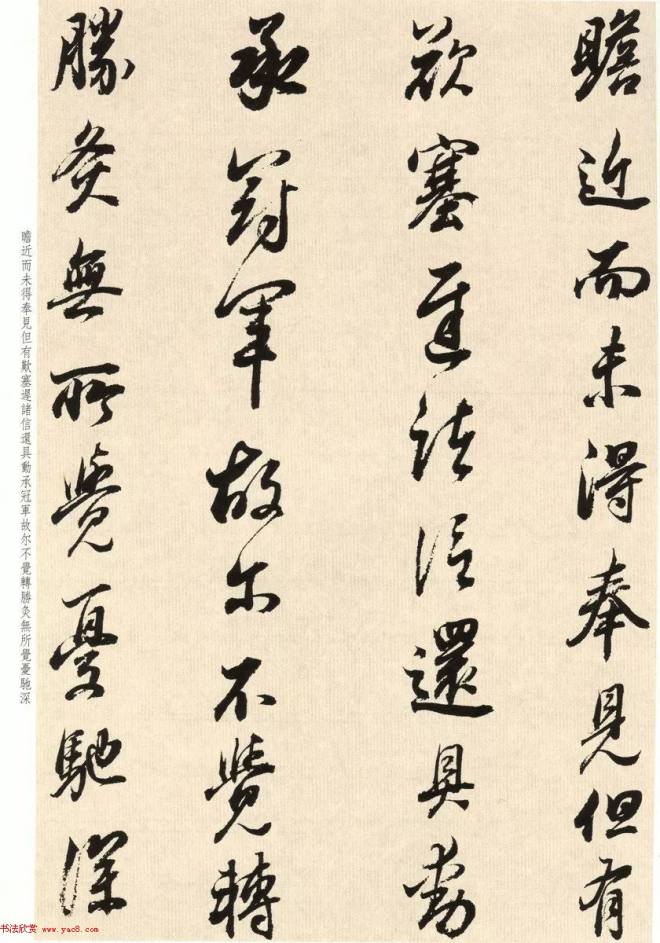 瞻近而未得奉見但有
歎塞遲諸信還具動
承冠軍故尓不覺轉
勝灸無所覺憂馳深
瞻近而未得奉見但有歎塞遲諸信還具動承冠軍故尔不覺轉勝灸無所覺憂馳深
书法欣赏 www.yac8.com